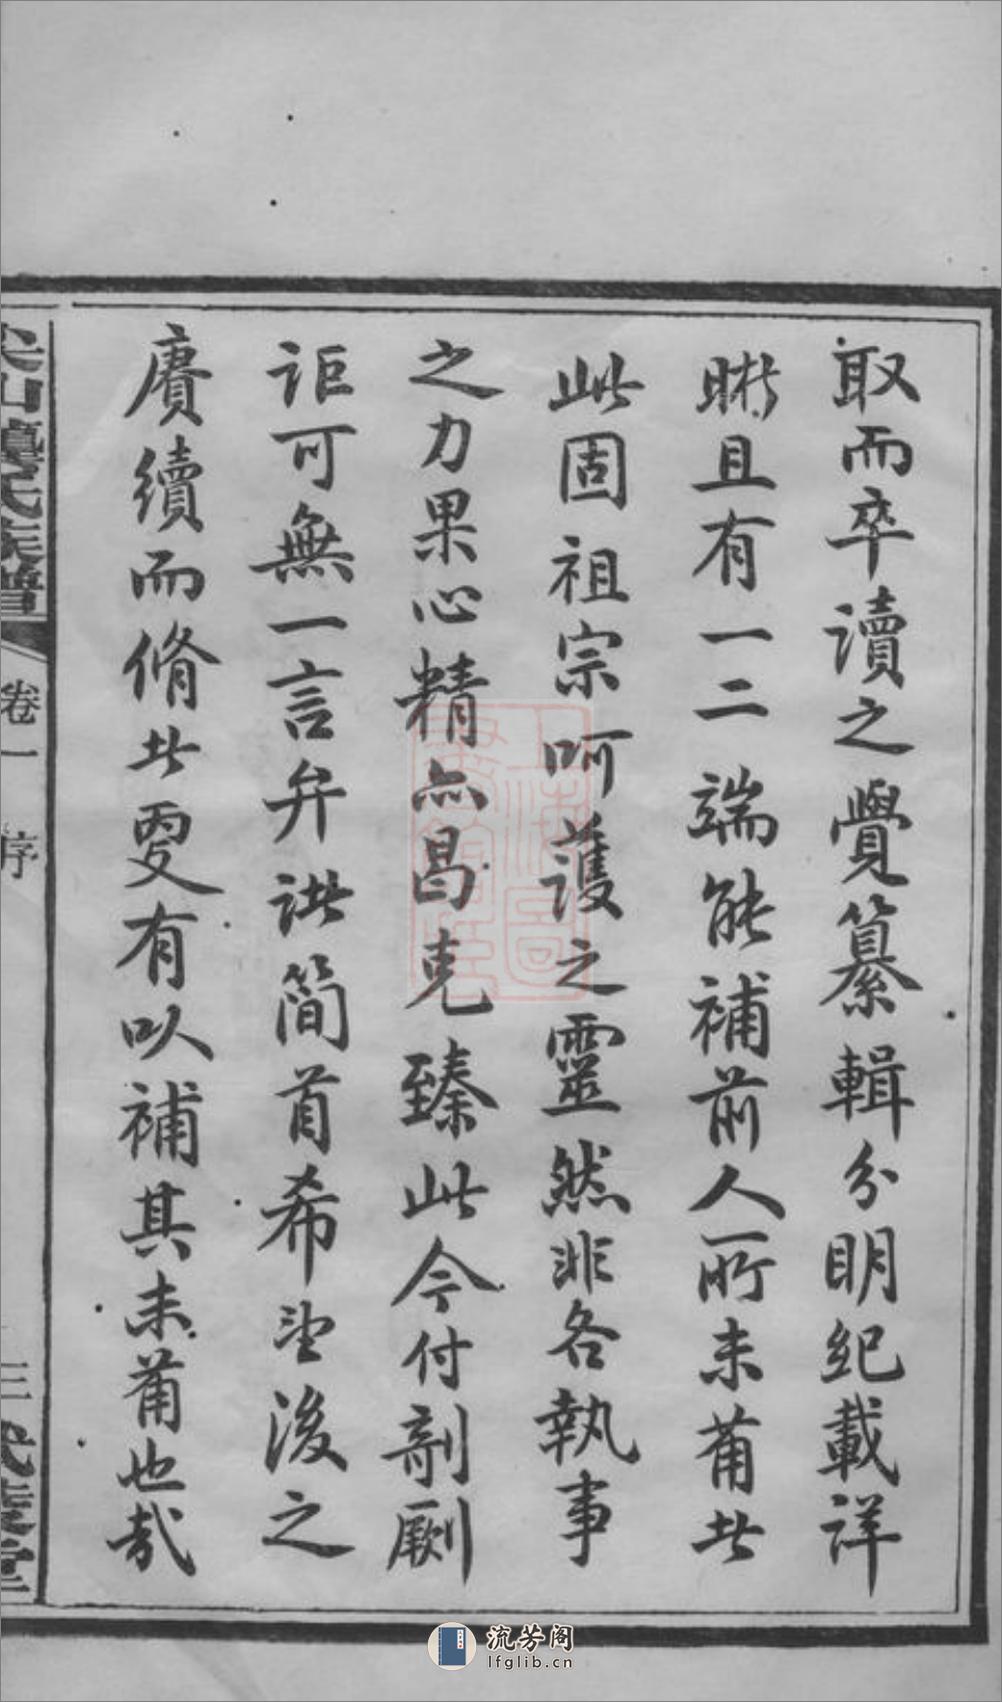 取而卒讀之覺纂輯分明紀載詳
晰且有一二端能補前人所未葡此
此固祖宗呵護之靈然非各執事
之力果心精亦曷克臻此今付剞劂
詎可無一言弁諸簡首希望後之
賡續而脩此更有以補其未葡也哉
尖山 氏族譜
卷一
序
三
上海圖書館藏
流芳阁
lfglib.cn